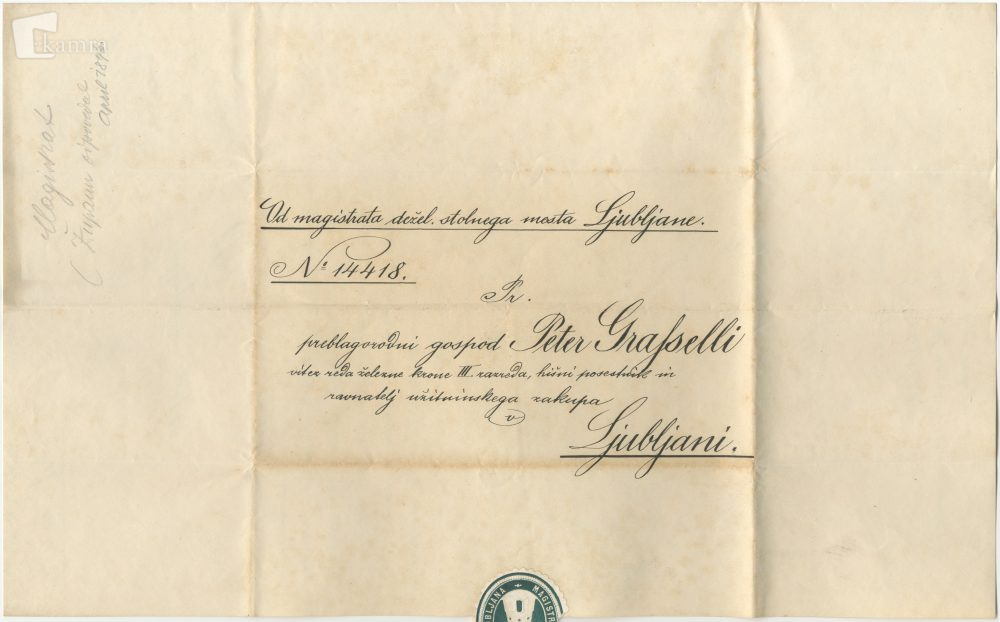 kamra
Magistrat
(Župan
april 189
Od magistrata dežel. stolnega mesta Ljubljane.
№ 14418.
Pr.
preblagorodni gospod Peter Graſselli
vitez reda železne krone III. razreda, hišni posestnik in
ravnatelj užitninskega zakupa
v
Ljubljani.
BLJANA MAGISTR